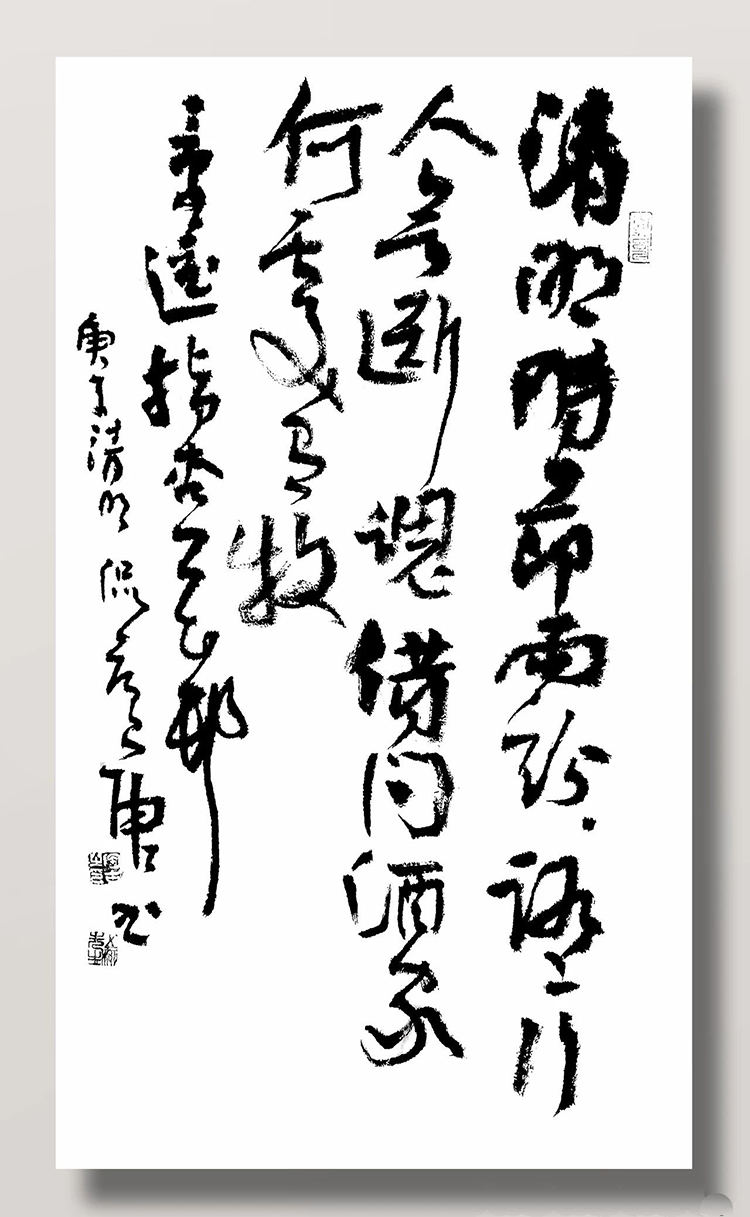 清明時節雨紛紛路上行
人欲斷魂借問酒家
何處有牧
童遙指杏花邨
庚子清明 侃 唐书